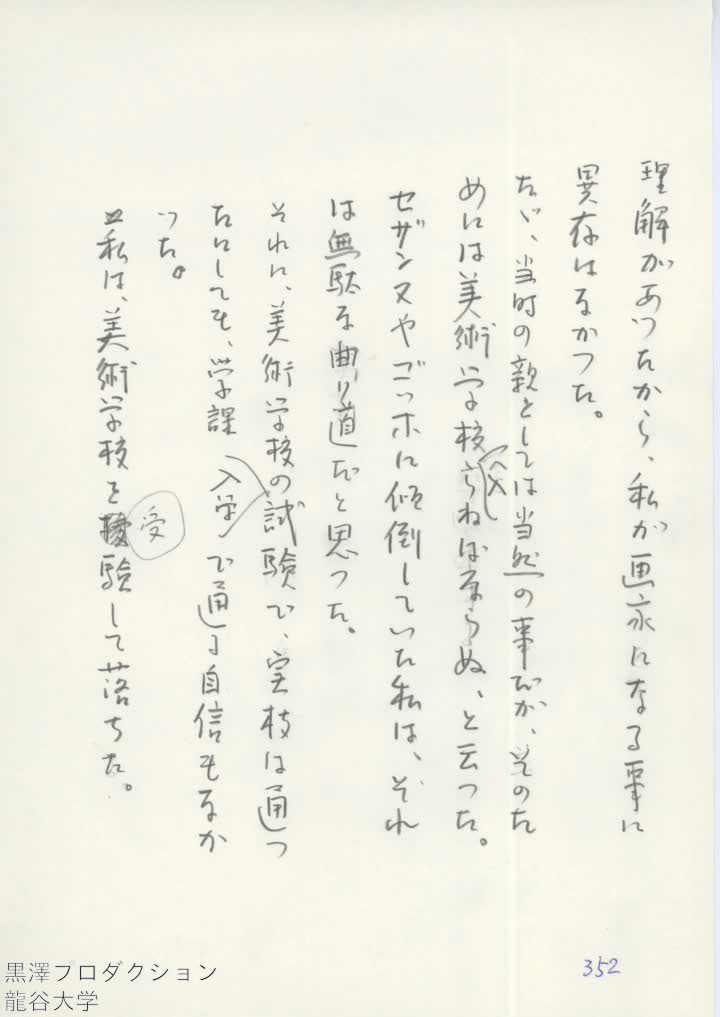 理解があつたから、私が画家になる事に
異存はなかつた。
たゞ、当時の親としては当然の事だが、そのた
めには美術学校へ入らねばならぬ、と云つた。
セザンヌやゴッホに傾倒していた私は、それ
は無駄な曲り道だと思つた。
それに、美術学校の入学試験で、実技は通つ
たにしても、学課で通る自信もなか
つた。
私は、美術学校を受験して落ちた。
352
黒澤プロダクション
龍谷大学